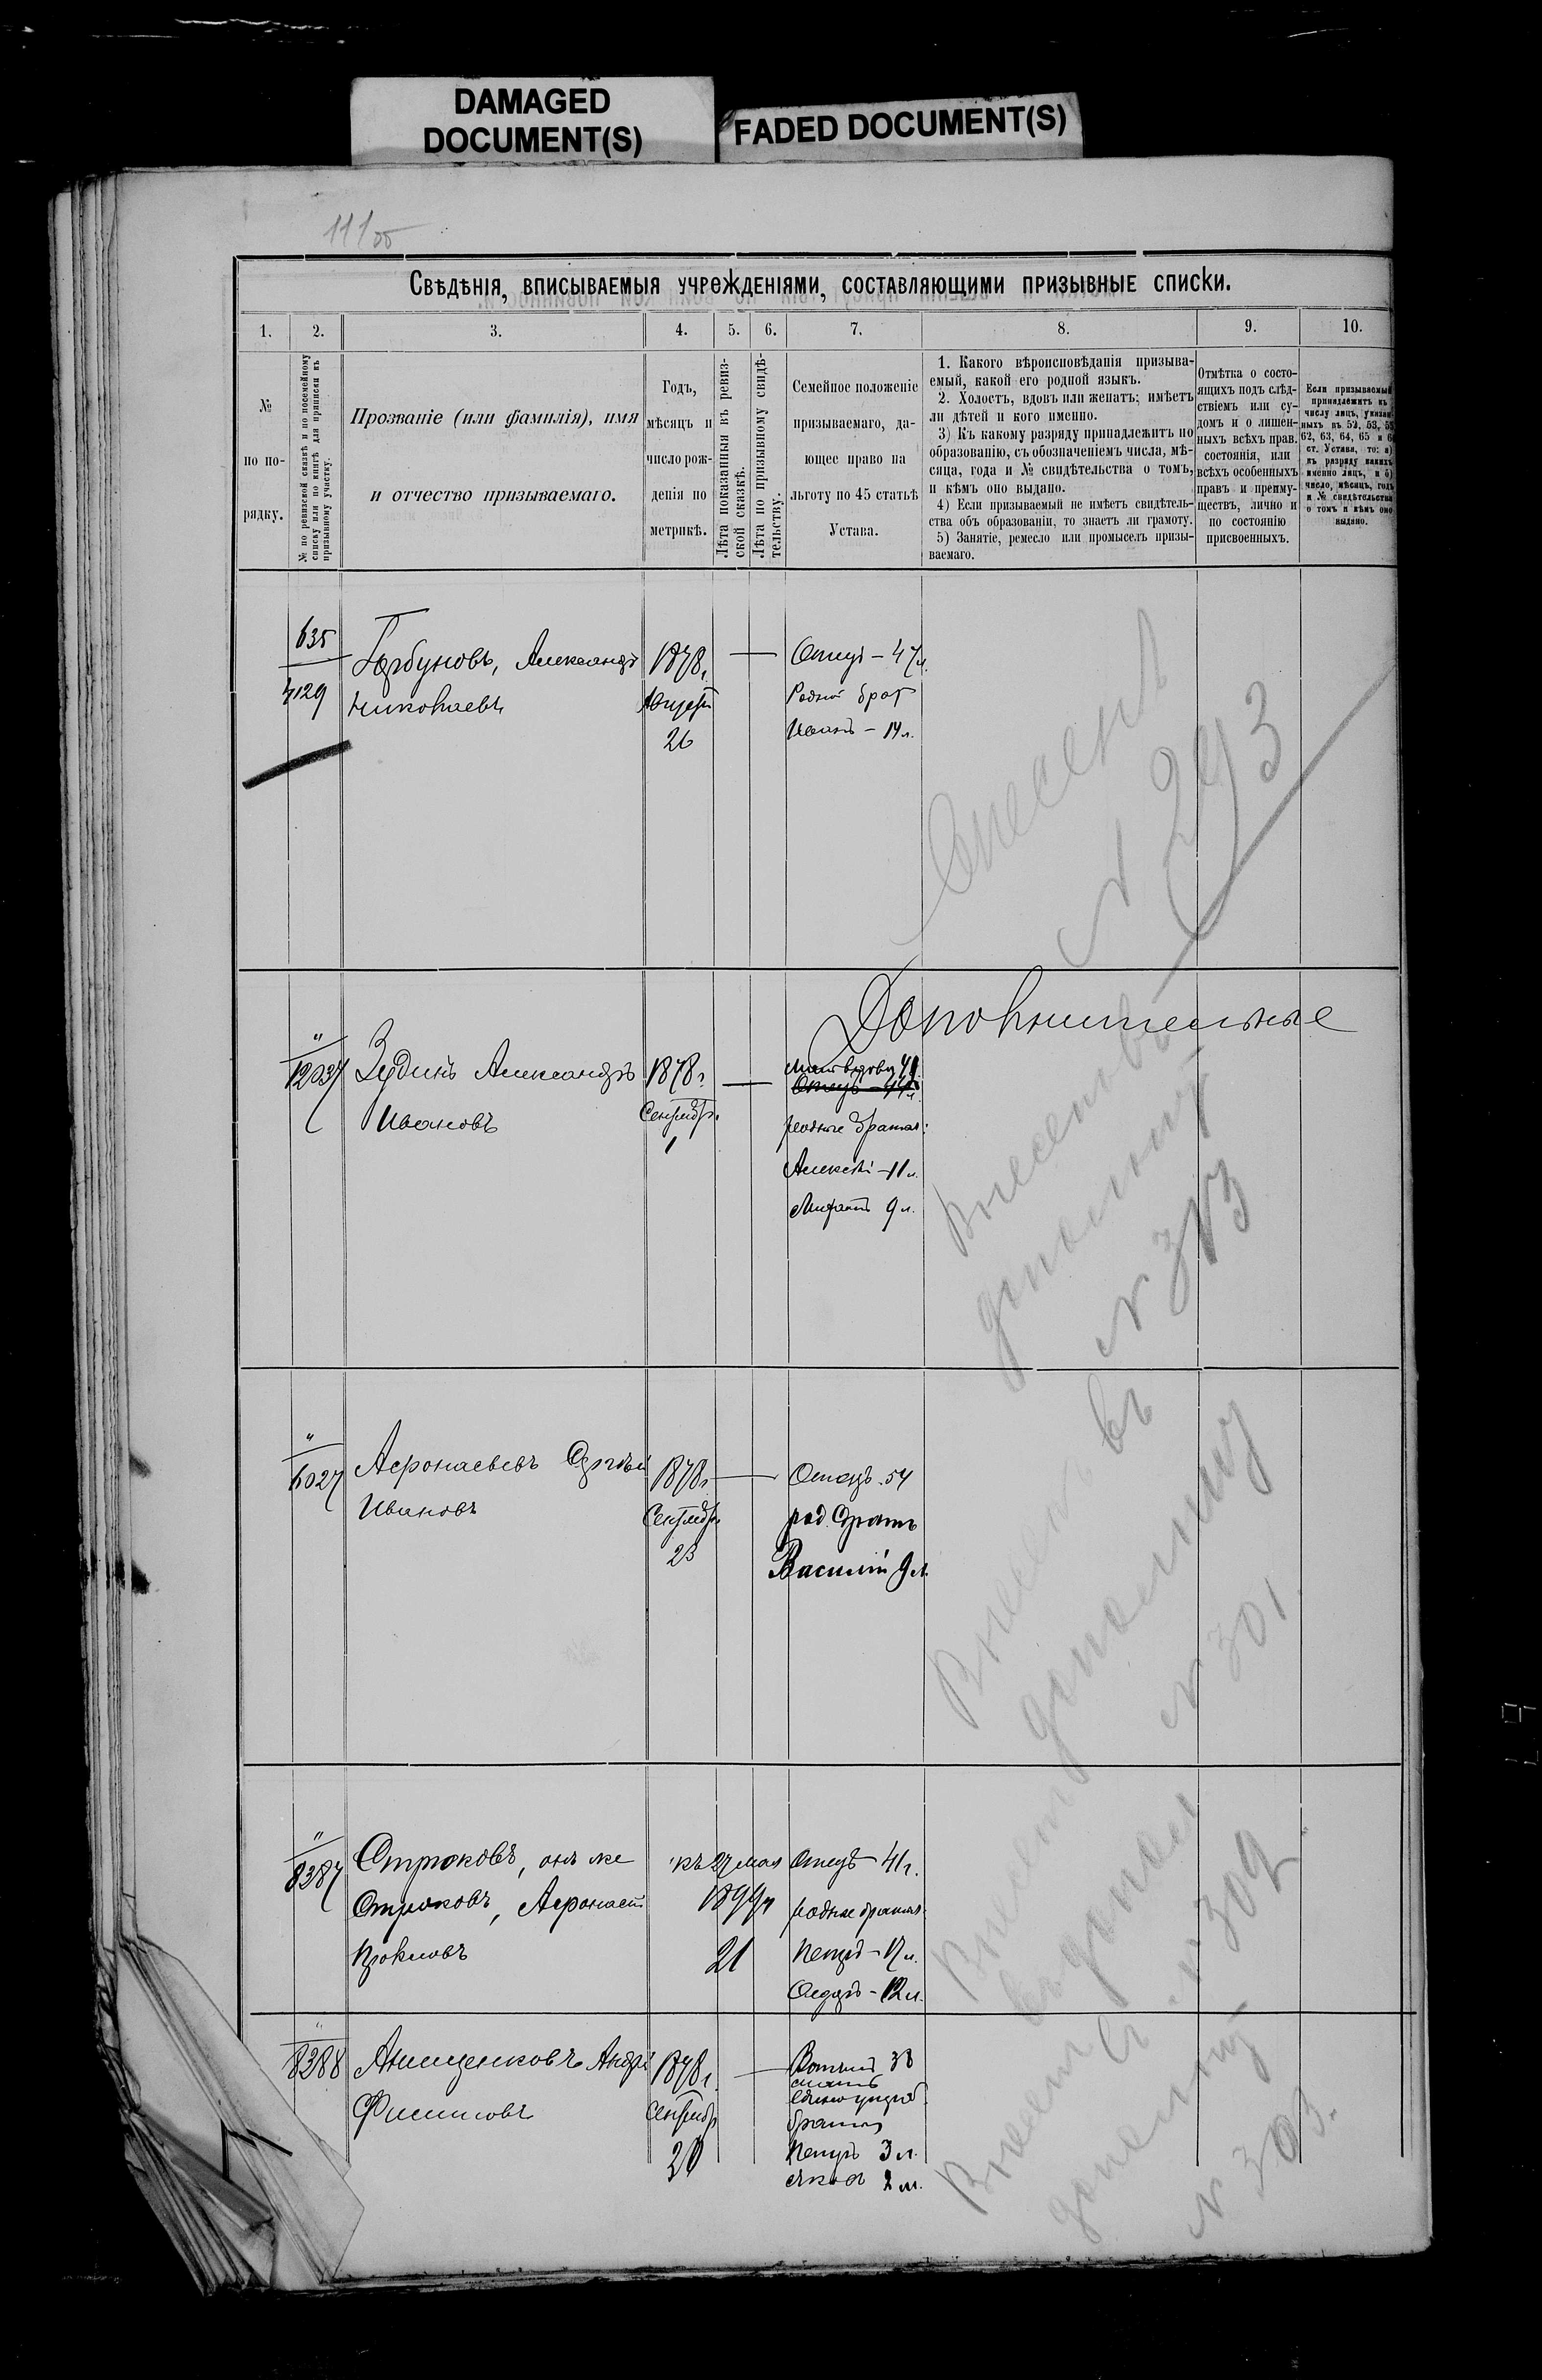 DAMAGED
DOCUMENT(S)
FADED DOCUMENT(S)
Свѣдѣнія, вписываемыя учрежденіями, составляющими призывные списки.
1. 2. 3. 4. 5. 6. 7. 8. 9. 10.
№
по по-
рядку.
№ по ревизской сказкѣ и по посемейному
списку или по книгѣ для приписки къ
призывному участку.
Прозваніе (или фамилія), имя
и отчество призываемаго.
Годъ,
мѣсяцъ и
число рож-
денія по
метрикѣ.
Лѣта показанныя въ ревиз-
ской сказкѣ.
Лѣта по призывному свидѣ-
тельству.
Семейное положеніе
призываемаго, да-
ющее право на
льготу по 45 статьѣ
Устава.
1. Какого вѣроисповѣданія призыва-
емый, какой его родной языкъ.
2. Холостъ, вдовъ или женатъ; имѣетъ
ли дѣтей и кого именно.
3) Къ какому разряду принадлежитъ по
образованію, съ обозначеніемъ числа, мѣ-
сяца, года и № свидѣтельства о томъ,
и кѣмъ оно выдано.
4) Если призываемый не имѣетъ свидѣтель-
ства объ образованіи, то знаетъ ли грамоту.
5) Занятіе, ремесло или промыселъ призы-
ваемаго.
Отмѣтка о состо-
ящихъ подъ слѣд-
ствіемъ или су-
домъ и о лишен-
ныхъ всѣхъ прав.
состоянія, или
всѣхъ особенныхъ
правъ и преиму-
ществъ, лично и
по состоянію
присвоенныхъ.
Если призываемый
принадлежитъ къ
числу лицъ, указан-
ныхъ въ 52, 53, 55
62, 63, 64, 65 и 6
ст. Устава, то: а)
къ разряду какихъ
именно лицъ, и б)
число, мѣсяцъ, годъ
и № свидѣтельства
о томъ и кѣмъ оно
выдано.
635
4129
Горбуновъ, Александръ
Николаевъ
1878г.
Августа
26
Отецъ – 47л.
Родной братъ
Иванъ – 14л.
№ 293
Дополнительные
"
12037
Зудинъ Александръ
Ивановъ
1878г.
Сентября
1
Мать вдова 41
Отецъ – 44л.
родные братья:
Алексѣй – 11л.
9л.
Внесенъ въ
№ 313
"
6027
Афонасьевъ
Ивановъ
1878г.
Сентября
23
Отецъ 54
род. братъ
Василій 9л.
Внесенъ въ
№ 301
"
8387
Строковъ, онъ же
Строковъ, Афонасій
къ 27 мая
1899г
21
Отецъ – 41г.
родные братья
Петръ – 17л.
Федоръ – 12л.
Внесенъ въ
№ 302
"
8388
Анищенковъ Андрей
Филиповъ
1878г.
Сентября
20
Вотчимъ 38
братья
Петръ 3л.
Яковъ 2л.
Внесенъ въ
№ 303.